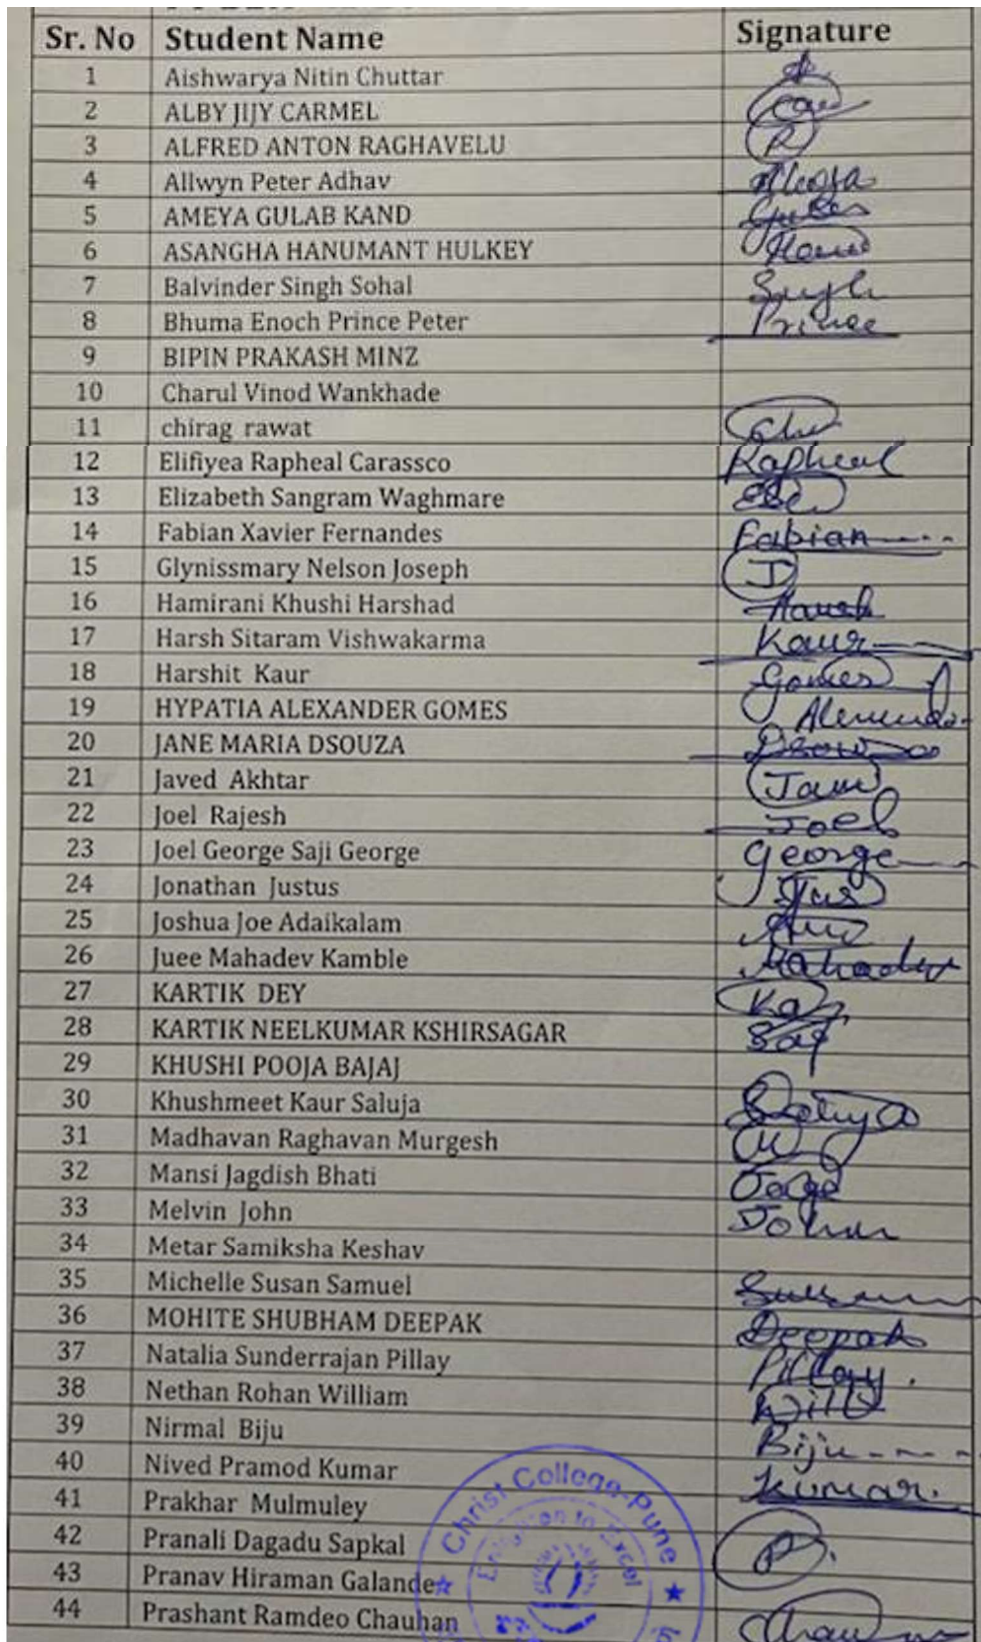 Sr. No Student Name Signature
1 Aishwarya Nitin Chuttar
2 ALBY JIJY CARMEL
3 ALFRED ANTON RAGHAVELU R
4 Allwyn Peter Adhav
5 AMEYA GULAB KAND
6 ASANGHA HANUMANT HULKEY
7 Balvinder Singh Sohal Singh
8 Bhuma Enoch Prince Peter Prince
9 BIPIN PRAKASH MINZ
10 Charul Vinod Wankhade
11 chirag rawat
12 Elifiyea Rapheal Carassco Rapheal
13 Elizabeth Sangram Waghmare
14 Fabian Xavier Fernandes Fabian
15 Glynissmary Nelson Joseph J
16 Hamirani Khushi Harshad
17 Harsh Sitaram Vishwakarma Kaur
18 Harshit Kaur Gomes
19 HYPATIA ALEXANDER GOMES
20 JANE MARIA DSOUZA
21 Javed Akhtar
22 Joel Rajesh Joel
23 Joel George Saji George George
24 Jonathan Justus Jus
25 Joshua Joe Adaikalam
26 Juee Mahadev Kamble Mahadev
27 KARTIK DEY
28 KARTIK NEELKUMAR KSHIRSAGAR Sag
29 KHUSHI POOJA BAJAJ
30 Khushmeet Kaur Saluja
31 Madhavan Raghavan Murgesh M
32 Mansi Jagdish Bhati
33 Melvin John John
34 Metar Samiksha Keshav
35 Michelle Susan Samuel
36 MOHITE SHUBHAM DEEPAK Deepak
37 Natalia Sunderrajan Pillay Pillay
38 Nethan Rohan William Will
39 Nirmal Biju Biju
40 Nived Pramod Kumar Kumar
41 Prakhar Mulmuley
42 Pranali Dagadu Sapkal P
43 Pranav Hiraman Galande
44 Prashant Ramdeo Chauhan
Christ College-Pune
to Excel